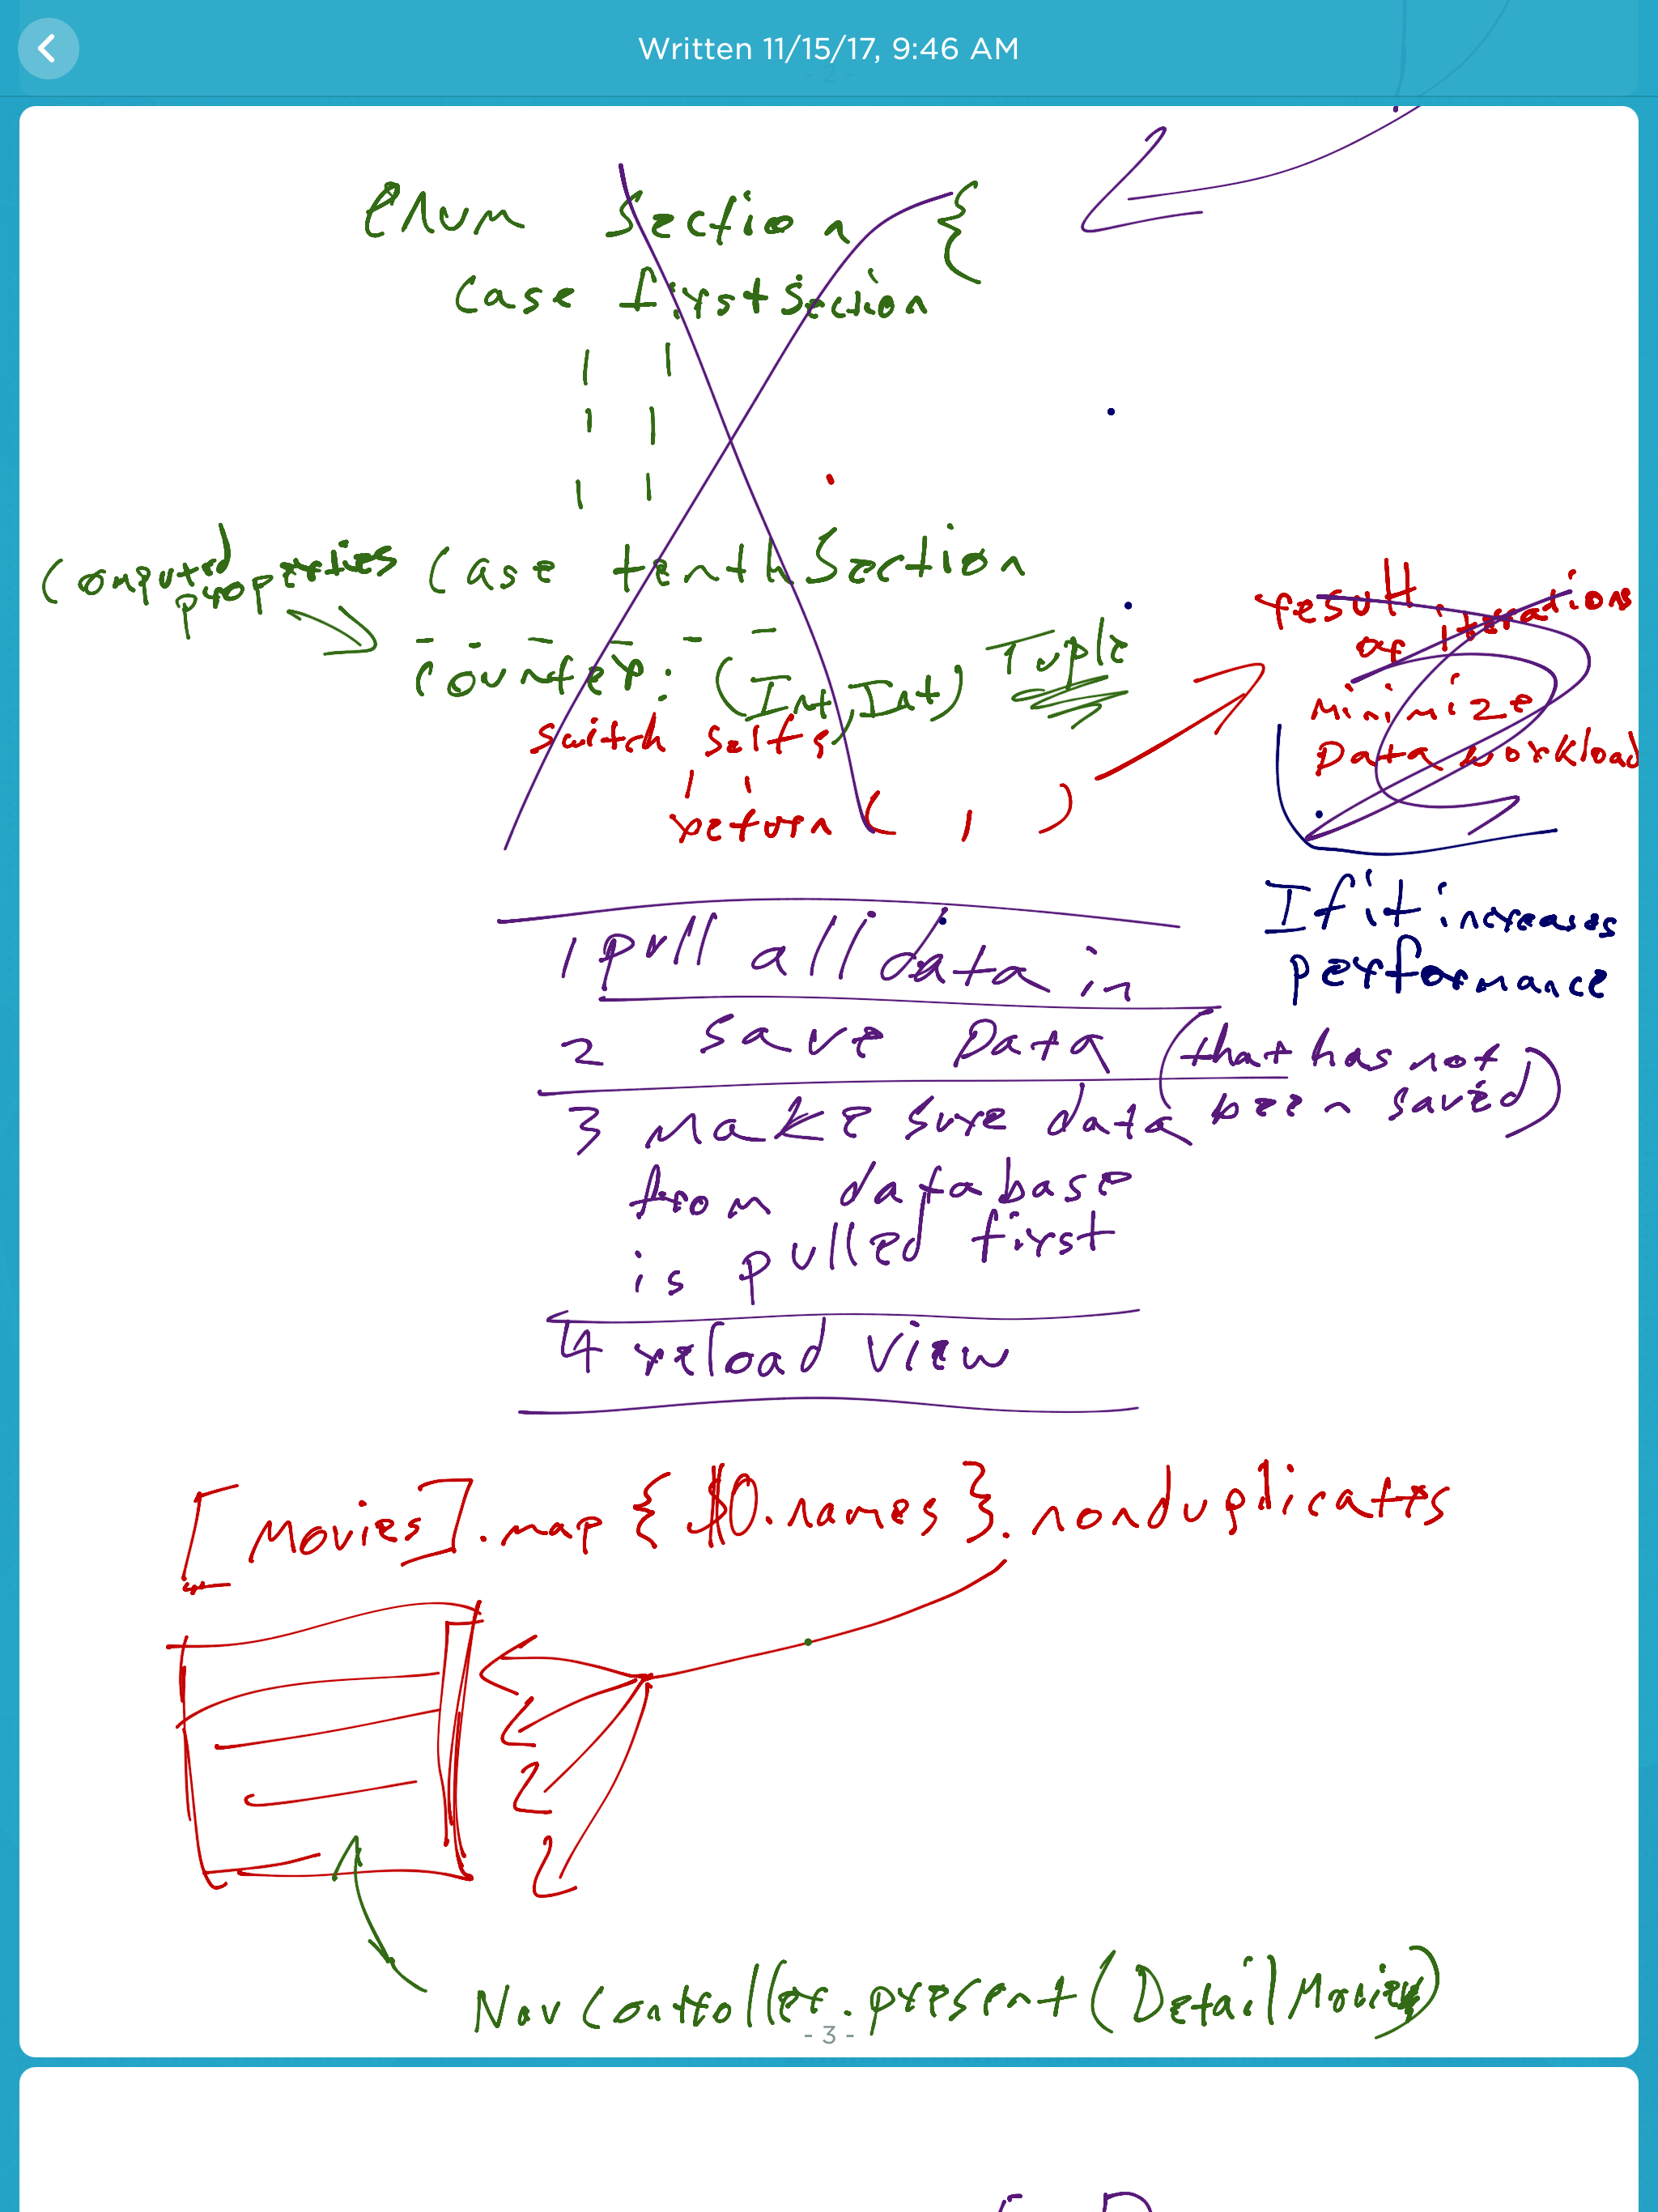 Written 11/15/17, 9:46 AM
enum Section {
case firstSection
computed properties
case tenthSection
counter: (Int, Int) Tuple
switch self {
return ( , )
result of iterations
Minimize
Data workload
If it increases
performance
1 pull all data in
2 save Data (that has not
been saved)
3 make sure data
from database
is pulled first
4 reload view
[Movies].map { $0.names }.nonduplicates
NavController.present(DetailMovies)
- 3 -